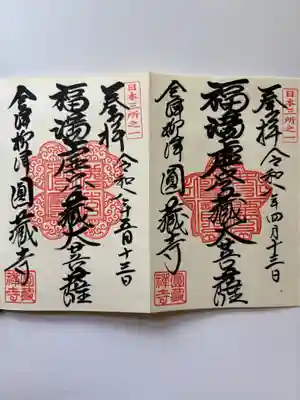 日本三所之一
奉拝 令和八年四月十三日
福満虚空藏大菩薩
会津柳津 圓藏寺
圓藏禪寺
日本三所之一
奉拝 令和八年五月十三日
福満虚空藏大菩薩
会津柳津 圓藏寺
圓藏禪寺